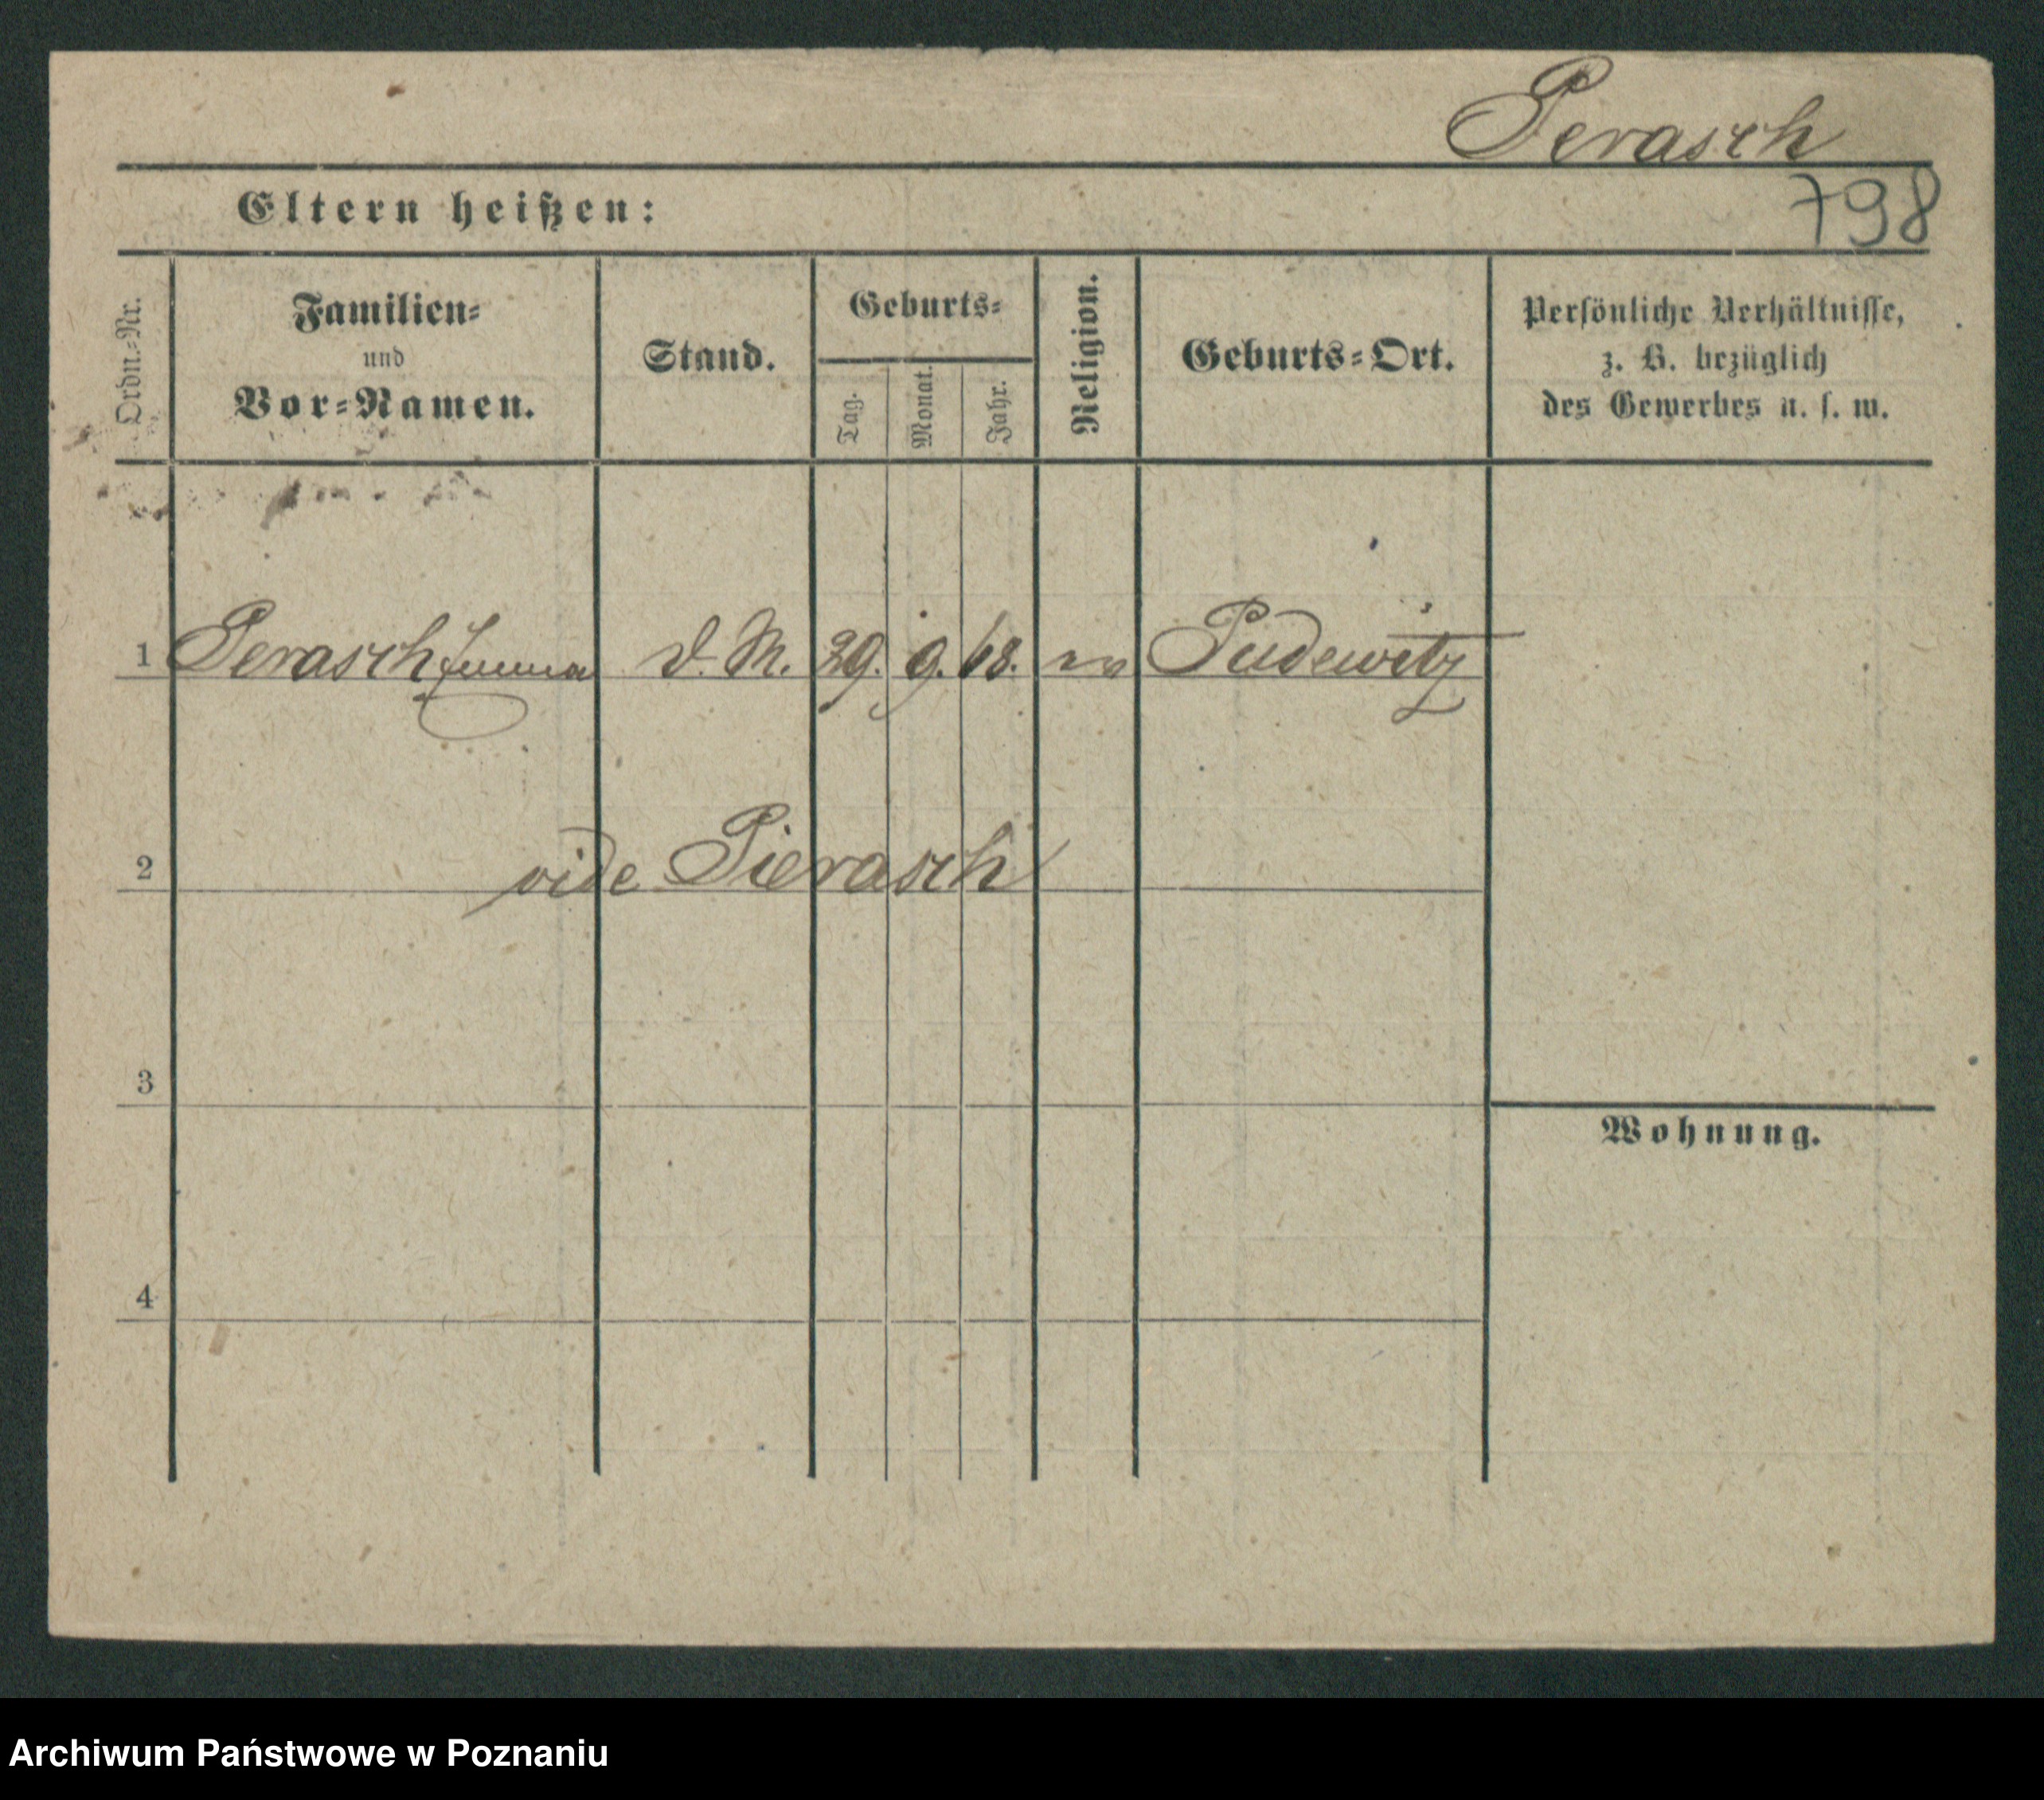 Perasch
798
Eltern heißen:
Ordn.-Nr.
Familien-
und
Vor-Namen.
Stand.
Geburts-
Tag.
Monat.
Jahr.
Religion.
Geburts-Ort.
Persönliche Verhältnisse,
z. B. bezüglich
des Gewerbes u. s. w.
1 Perasch Emma d. M. 29. 9. 68. ev Pudewitz
2 vide Pierasch
3
Wohnung.
4
Archiwum Państwowe w Poznaniu